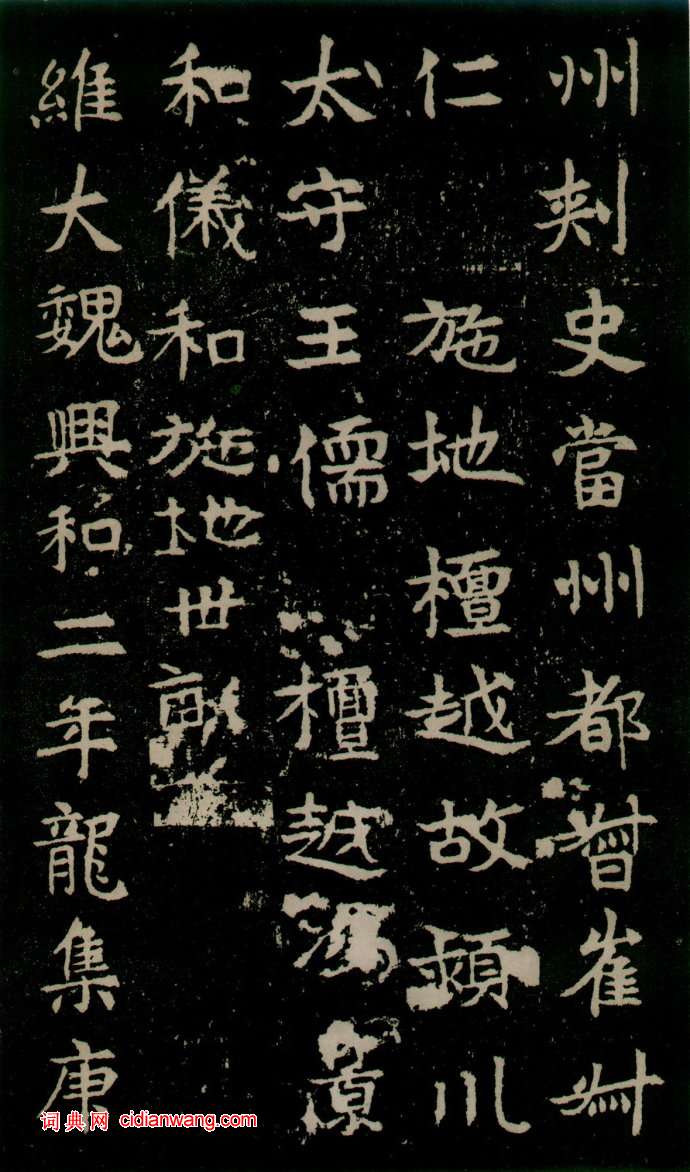 州刺史當州都督崔叔
仁 施地檀越故潁川
太守王儒 檀越 原
和儀和施地世
維大魏興和二年龍集庚
词典网 cidianwang.com